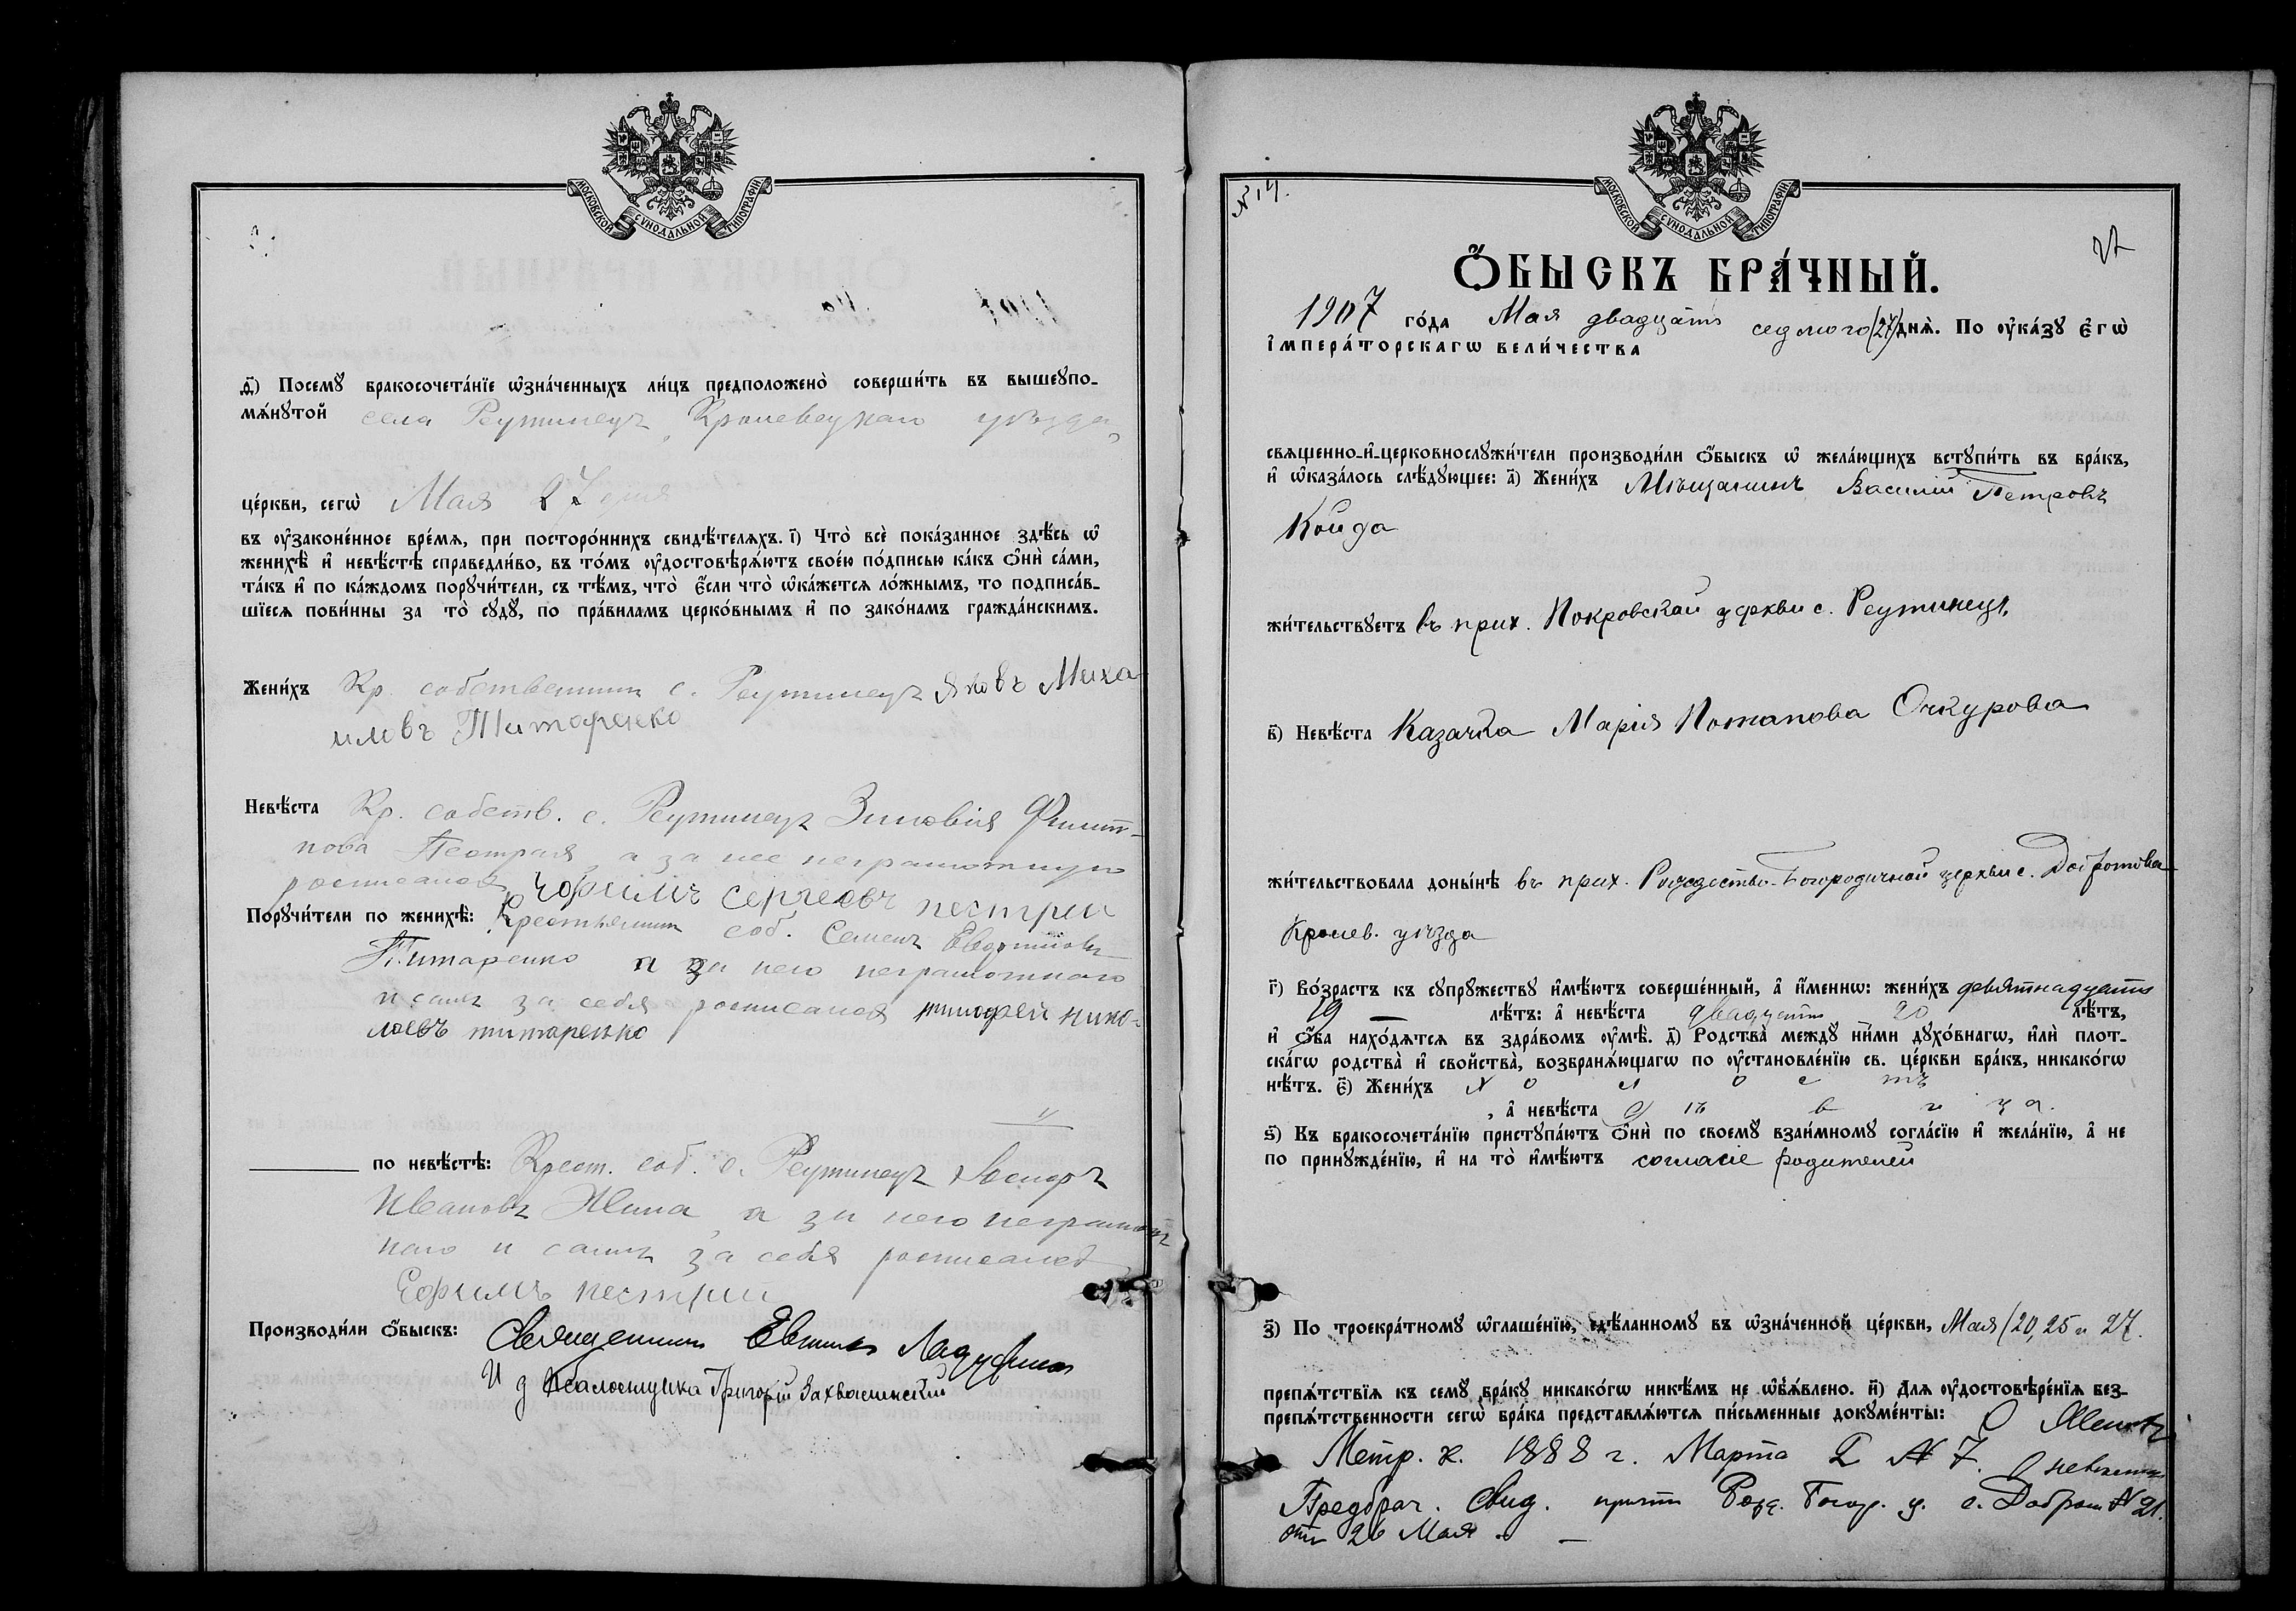 МОСКОВСКОЙ СѴНОДАЛЬНОЙ ТИПОГРАФІИ
ѳ҃) Посемꙋ бракосочета́нїе ѡ҆зна́ченныхъ ли́цъ предположено̀ соверши́ть въ вышеꙋпо-
мѧ́нꙋтой села Реутинецъ, Кролевецкаго уѣзда,
це́ркви, сегѡ̀ Мая 27 дня
въ ᲂу҆законе́нное вре́мѧ, при посторо́ннихъ свидѣ́телѧхъ. і҃) Что̀ всѐ пока́занное здѣ́сь ѡ҆
женихѣ̀ и҆ невѣ́стѣ справедли́во, въ то́мъ ᲂу҆достовѣрѧ́ютъ свое́ю по́дписью ка́къ ѻ҆нѝ са́ми,
та́къ и҆ по ка́ждомъ порꙋчи́тели, съ тѣ́мъ, что̀ є҆́сли что̀ ѡ҆ка́жется ло́жнымъ, то подписа́в-
шїеся пови́нны за то̀ сꙋдꙋ̀, по пра́виламъ церко́внымъ и҆ по зако́намъ гражда́нскимъ.
Жени́хъ Кр. собственникъ с. Реутинецъ Яковъ Миха
иловъ Титаренко
Невѣ́ста Кр. собств. с. Реутинецъ Зиновія Филип-
пова Пестрая, а за нее неграмотную
росписался Юфимъ Сергеевъ пестрей
Порꙋчи́тели по женихѣ̀: Крестьянинъ соб. Семенъ Евдокимовъ
Титаренко а за него неграмотного
и самъ за себя росписался тимофей нико-
лаевъ титаренко
по невѣ́стѣ: Крест. соб. с. Реутинецъ
Ивановъ а за него неграмот
наго и самъ за себя росписался
Ефимъ пестрий
Производи́ли ѻ҆́быскъ: Священникъ
И д Псаломщика Григорій Захваlinскій
МОСКОВСКОЙ СѴНОДАЛЬНОЙ ТИПОГРАФІИ
№ 14.
Ѻ҆́БЫСКЪ БРА́ЧНЫЙ.
1907 го́да Мая двадцать седмого (27) днѧ̀. По ᲂу҆ка́зꙋ є҆гѡ̀
і҆мпера́торскагѡ вели́чества
свѧщенно-и҆-церковнослꙋжи́тели производи́ли ѻ҆́быскъ ѡ҆ жела́ющихъ встꙋпи́ть въ бра́къ,
и҆ ѡ҆каза́лось слѣ́дꙋющее: а҃) Жени́хъ Мѣщанинъ Василій Петровъ
Койда
жи́тельствꙋетъ въ прих. Покровской церкви с. Реутинецъ,
в҃) Невѣ́ста Казачка Марія Потапова Очкурова
жи́тельствовала доны́нѣ въ прих. Рождество-Богородичной церкви с. Добротова
Кролев. уѣзда
г҃) Во́зрастъ къ сꙋпрꙋ́жествꙋ и҆мѣ́ютъ соверше́нный, а҆ и҆́меннѡ: жени́хъ девятнадцать
19 — лѣ́тъ: а҆ невѣ́ста двадцать 20 лѣ́тъ,
и҆ ѻ҆́ба нахо́дѧтсѧ въ здра́вомъ ᲂу҆мѣ̀. д҃) Родства̀ междꙋ ни́ми дꙋхо́внагѡ, и҆лѝ плот-
ска́гѡ родства̀ и҆ свойства̀, возбранѧ́ющагѡ по ᲂу҆становле́нїю св. це́ркви бра́къ, никако́гѡ
нѣ́тъ. є҃) Жени́хъ х о л о с тъ
, а҆ невѣ́ста д ѣ в и ц а.
ѕ҃) Къ бракосочета́нїю пристꙋпа́ютъ ѻ҆нѝ по своемꙋ̀ взаи́мномꙋ согла́сїю и҆ жела́нїю, а҆ не
по принꙋжде́нїю, и҆ на то̀ и҆мѣ́ютъ согласіе родителей
з҃) По троекра́тномꙋ ѡ҆глаше́нїю, сдѣ́ланномꙋ въ ѡ҆зна́ченной це́ркви, Мая (20, 25 и 27.
препѧ́тствїѧ къ семꙋ̀ бра́кꙋ никако́гѡ никѣ́мъ не ѡ҆б̾ѧ́влено. и҃) Длѧ ᲂу҆достовѣре́нїѧ без-
препѧ́тственности сегѡ̀ бра́ка представлѧ́ютсѧ пи́сьменные докꙋме́нты: О Женихѣ
Метр. к. 1888 г. Марта № 7. О невѣстѣ
Предбрач. свид. причта Рожд. Богор. ц. с. Добротова № 21.
отъ 26 Мая. —